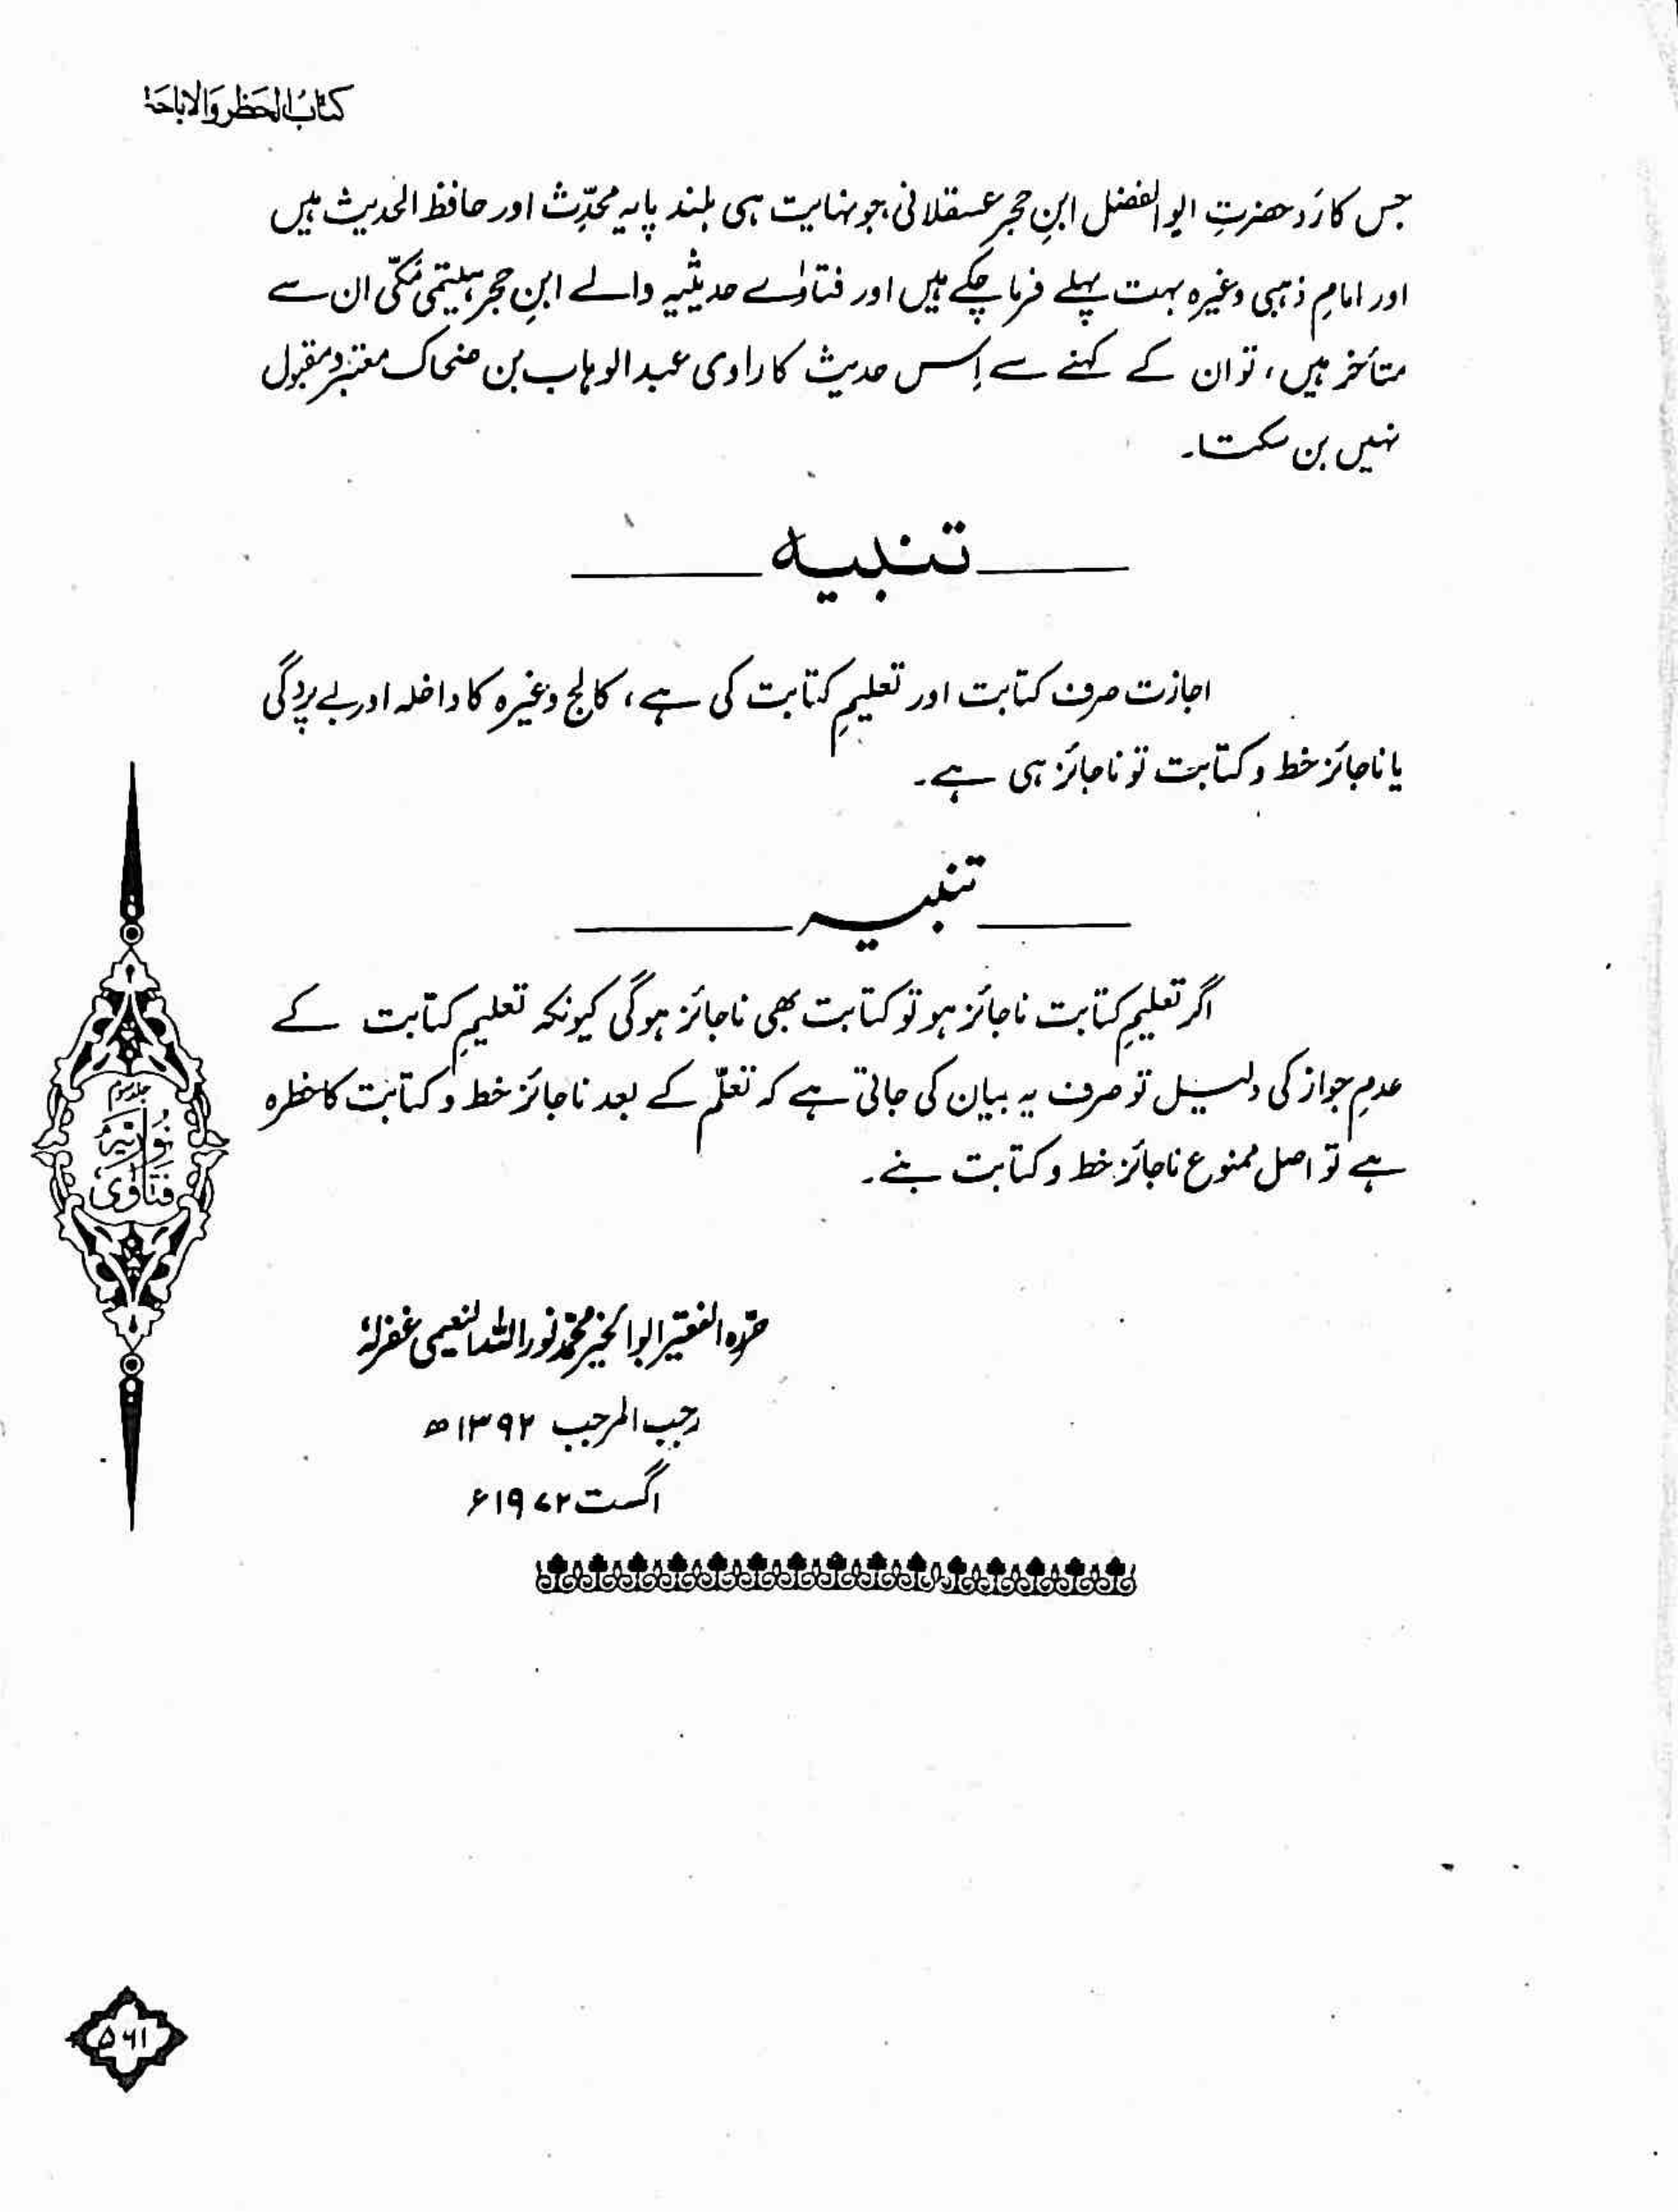 کتابُ الحَظر وَالاباحَة
جس کا رَد حضرتِ ابو الفضل ابنِ حجر عسقلانی جو نہایت ہی بلند پایہ محدِّث اور حافظ الحدیث ہیں
اور امامِ ذہبی وغیرہ بہت پہلے فرما چکے ہیں اور فتاوٰے حدیثیہ والے ابنِ حجر ہیتمی مَکّی ان سے
متأخر ہیں، تو ان کے کہنے سے اِس حدیث کا راوی عبد الوہاب بن ضحاک معتبر و مقبول
نہیں بن سکتا۔
تنبیہ
اجازت صرف کتابت اور تعلیمِ کتابت کی ہے، کالج وغیرہ کا داخلہ اور بے پردگی
یا ناجائز خط و کتابت تو ناجائز ہی ہے۔
تنبیہ
اگر تعلیمِ کتابت ناجائز ہو تو کتابت بھی ناجائز ہوگی کیونکہ تعلیمِ کتابت کے
عدمِ جواز کی دلیل تو صرف یہ بیان کی جاتی ہے کہ تعلّم کے بعد ناجائز خط و کتابت کا خطرہ
ہے تو اصل ممنوع ناجائز خط و کتابت بنے۔
حرّرہ الفقیر ابو الخیر محمّد نور اللہ النعیمی غفرلہٗ
رجب المرجب ۱۳۹۲ھ
اگست ۱۹۷۲ء
جلد سوم
نُورِیَّہ
فَتَاوٰی
۵۶۱